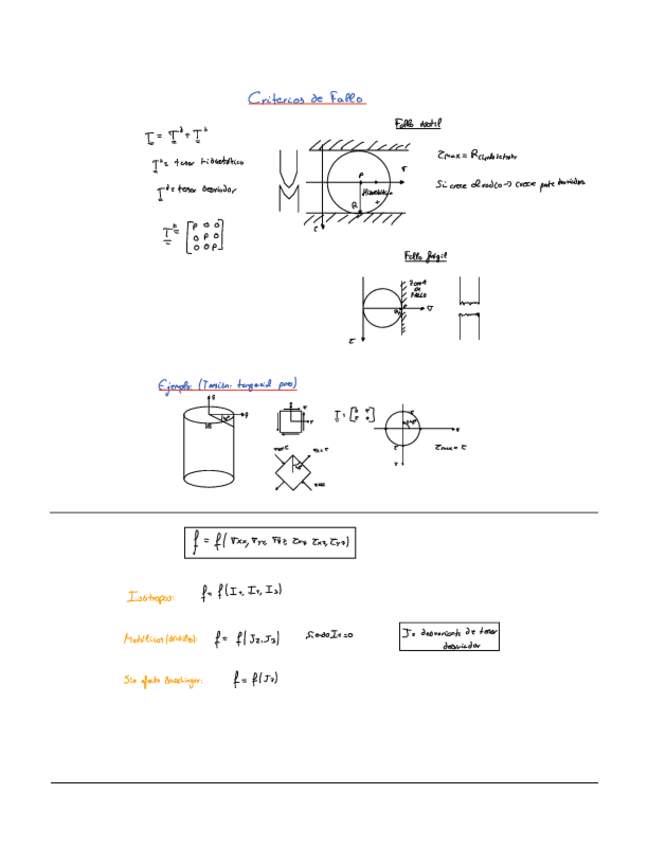 Criterios de Fallo
Fallo dúctil
T = T^d + T^h
T^h = tensor hidrostático
T^d = tensor desviador
T^h = [P 0 0
0 P 0
0 0 P]
P
Hidrostático
+
R
σ
τ
τmax = R
Si crece el radio → crece parte
Fallo frágil
ZONA
DE
FALLO
σ
τ
Ejemplo: (Torsión: tangencial puro)
T =
τmax = τ
f = f(σxx, σyy, σzz, τxy, τxz, τyz)
Isótropos: f = f(I1, I2, I3)
Metálicos (dúctiles): f = f(J2, J3) Siendo I1=0
J = de tensor
desviador
Sin efecto Bauschinger: f = f(J2)